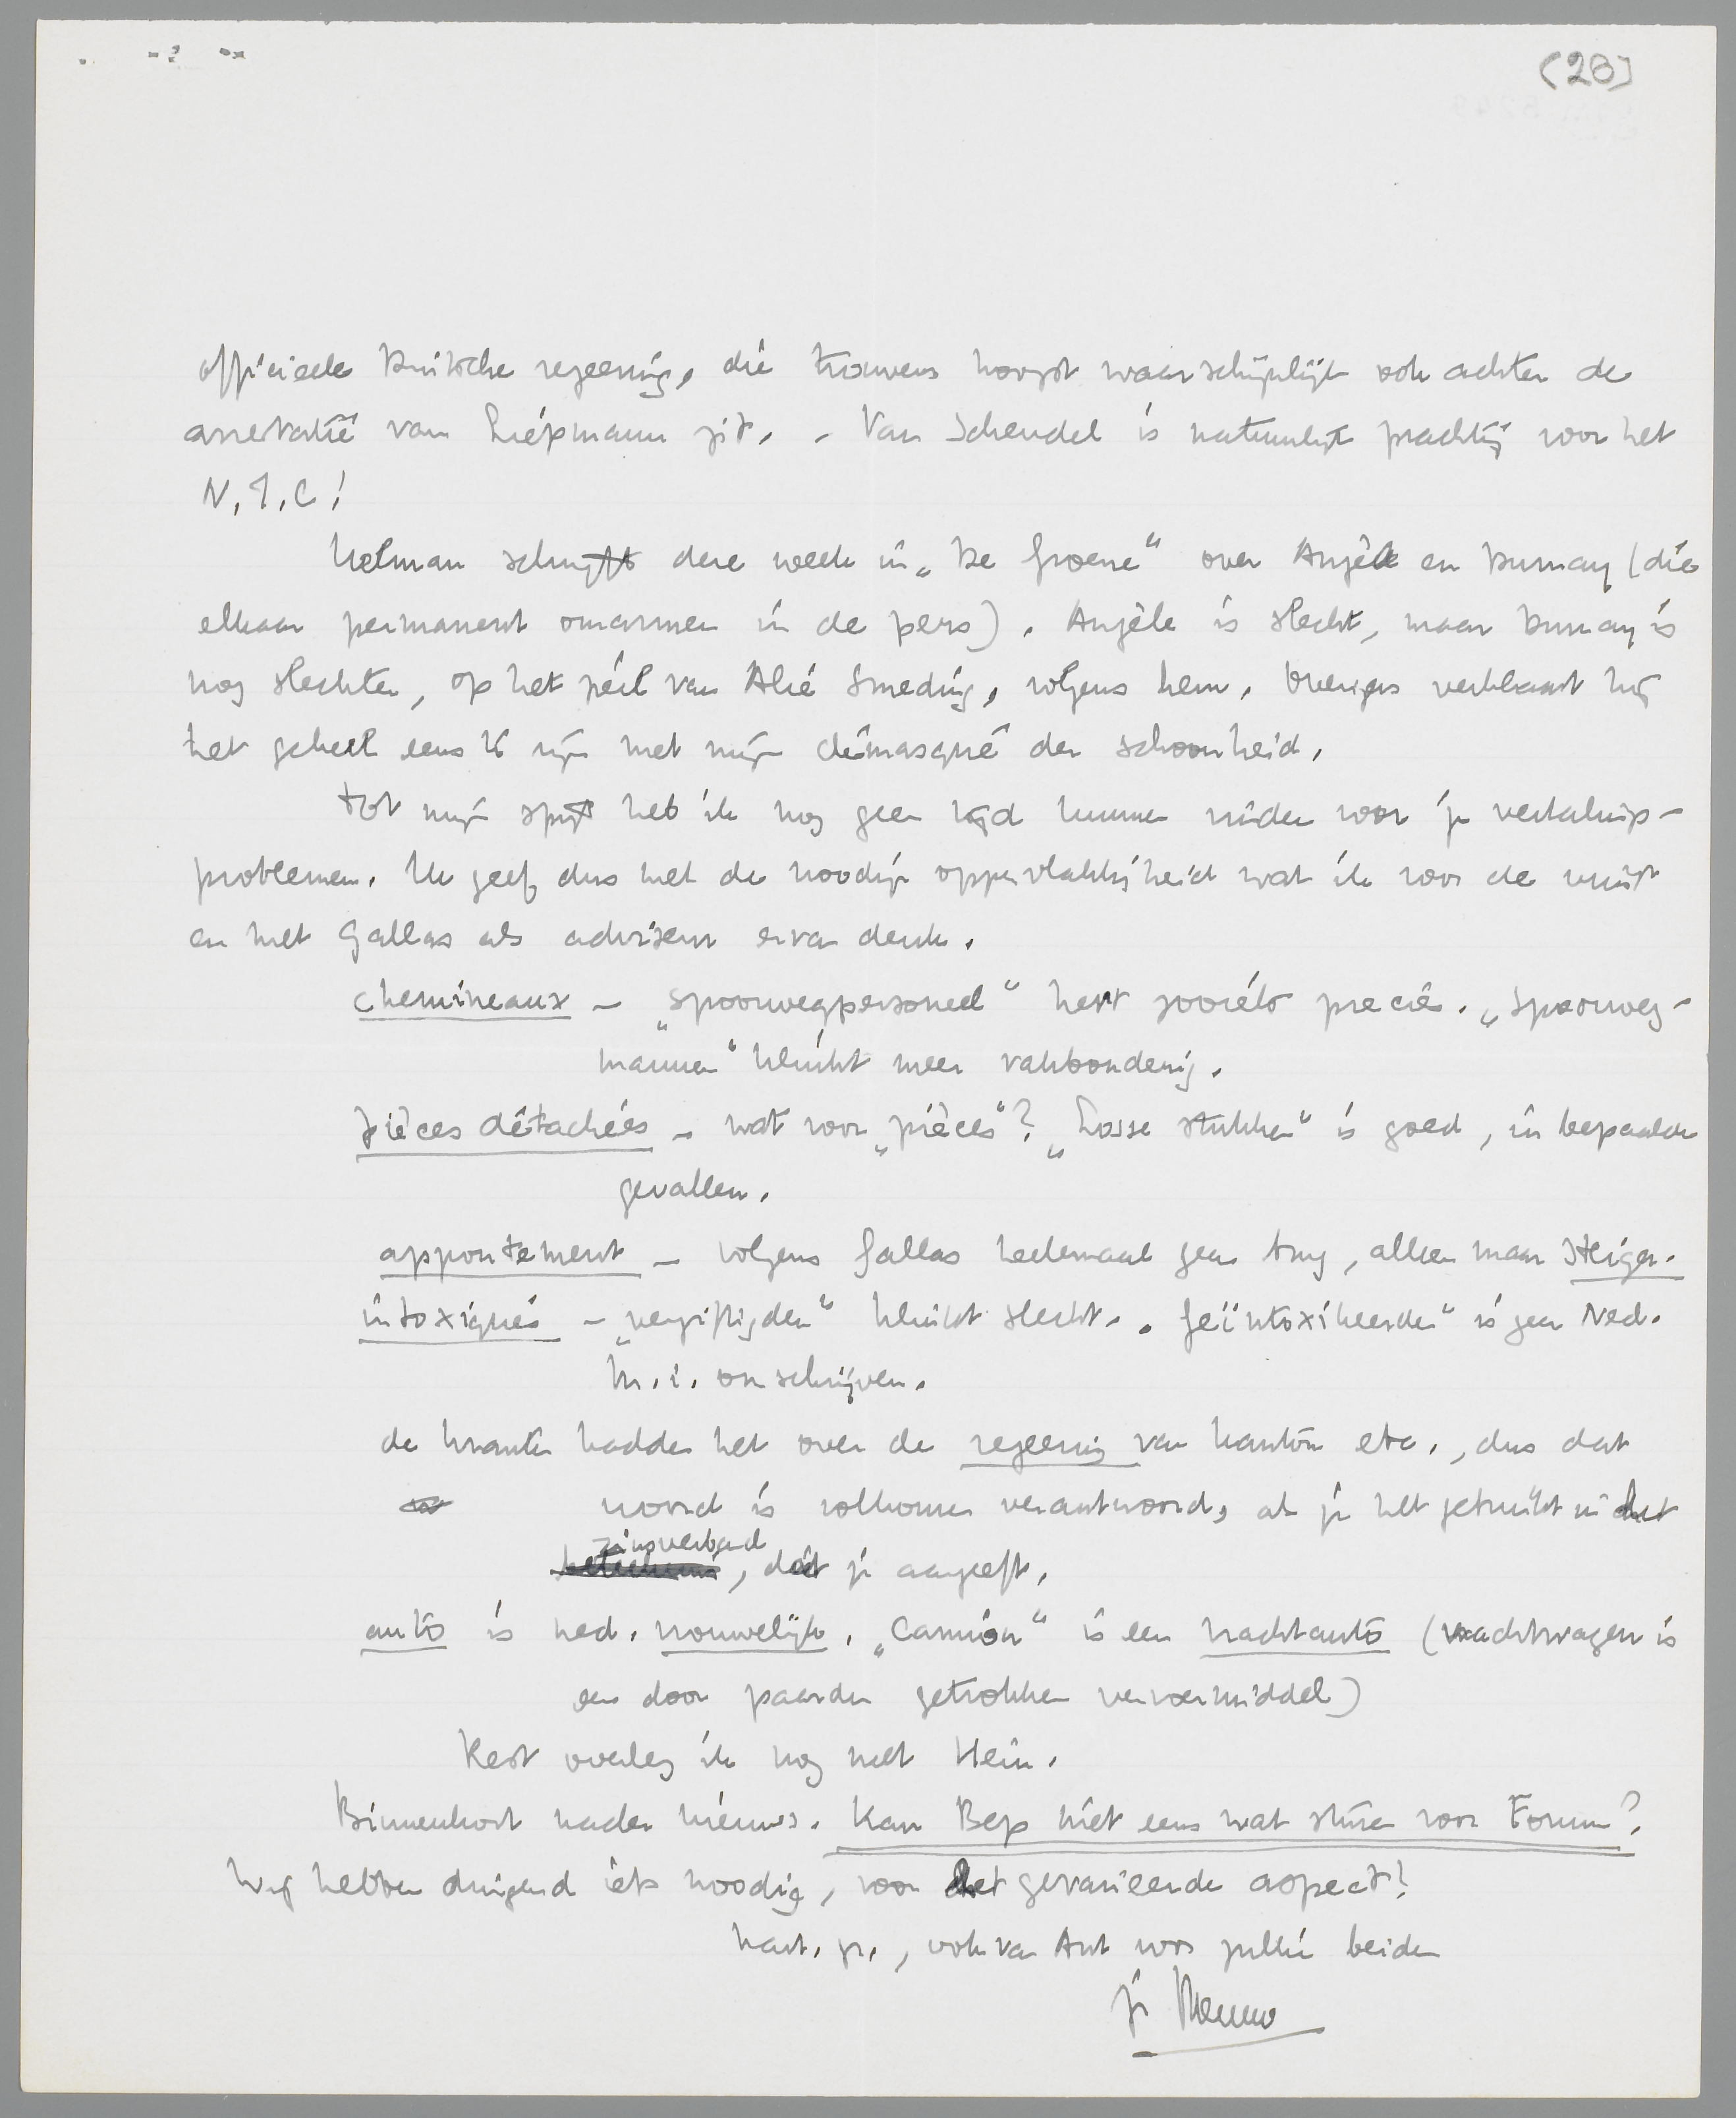 (28)
officieele Duitsche regeering, die trouwens hoogst waarschijnlijk ook achter de
arrestatie van Liepmann zit. - Van Schendel is natuurlijk prachtig voor het
N.T.C!
Helman schrijft deze week in „De Groene“ over Angèle en Dumay (die
elkaar permanent omarmen in de pers). Angèle is slecht, maar Dumay is
nog slechter, op het peil van Alie Smeding, volgens hem. Overigens verklaart hij
het geheel eens te zijn met mijn démasqué der schoonheid.
Tot mijn spijt heb ik nog geen tijd kunnen vinden voor je vertalings-
problemen. Ik geef dus met de noodige oppervlakkigheid wat ik voor de vuist
en met Gallas als adviseur ervan denk.
chemineaux - „spoorwegpersoneel“ heet zooiets precies. „Spoorweg-
mannen“ klinkt meer vakbonderig.
pièces détachées - wat voor „pièces“? „Losse stukken“ is goed, in bepaalde
gevallen.
appontement - volgens Gallas heelemaal geen brug, alleen maar steiger.
intoxiqués - „vergiftigden“ klinkt slecht. „Geïntoxikeerden“ is geen Ned.
M.i. omschrijven.
de kranten hadden het over de regeering van Kanton etc., dus dat
woord is volkomen verantwoord, als je het gebruikt in het
zinsverband
, dat je aangeeft.
auto is ned. vrouwelijk. „Camion“ is een vrachtauto (vrachtwagen is
een door paarden getrokken vervoermiddel)
Rest overleg ik nog met Hein.
Binnenkort nader nieuws. Kan Bep niet eens wat sturen voor Forum?
Wij hebben dringend iets noodig, voor het gevarieerde aspect!
hart. gr., ook van Ant voor jullie beiden
je Menno